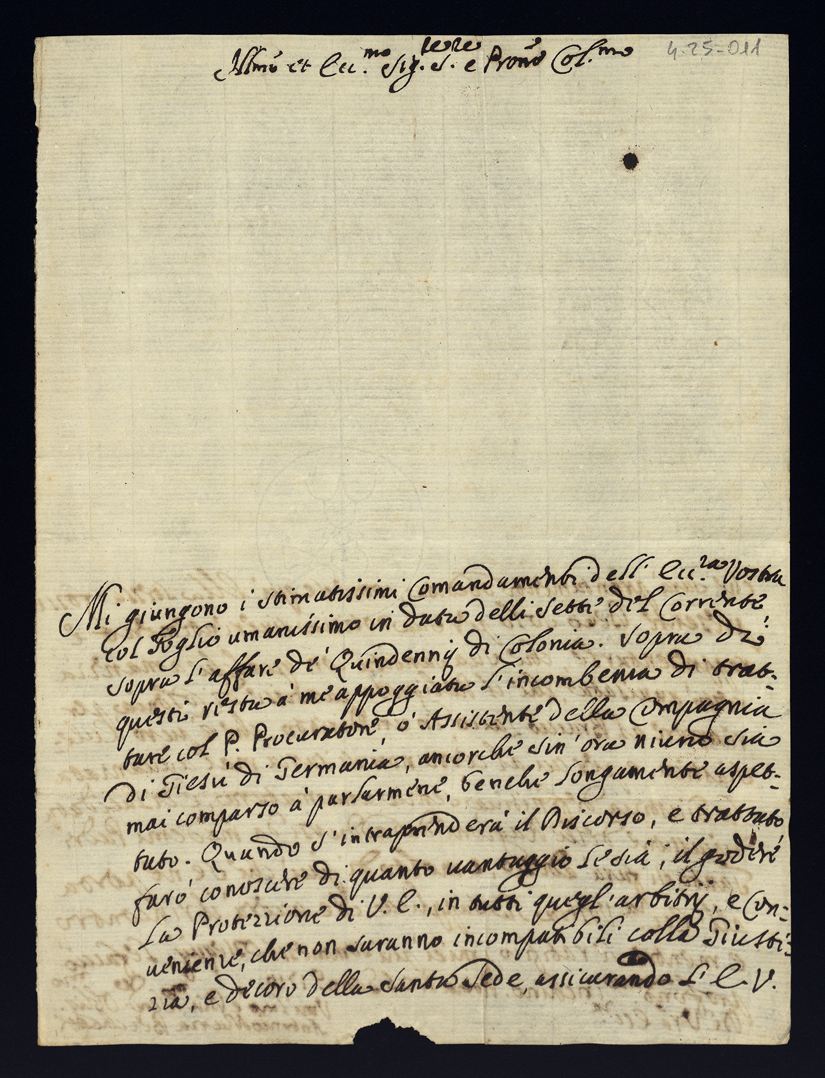 Ill.mo et Ecc.mo Sig.re S.re e Prone Col.mo
4-25-011
Mi giungono i stimatissimi Comandamenti dell' Ecc.ra Vostra
col Foglio umanissimo in data delli sette del Corrente
sopra l'affare de' Quindennij di Colonia. Sopra di
questi resta à me appoggiata l'incombenza di trat-
tare col P. Procuratore, ò Assistente della Compagnia
di Giesù di Germania, ancorche sin' ora niuno sia
mai comparso à parlarmene, benche longamente aspet-
tato. Quando s'intraprenderà il Discorso, e trattato
farò conoscere di quanto vantaggio le sia, il godere
la Protezzione di V. E., in tutti quegl'arbitrij, e con-
venienze, che non saranno incompatibili colla Giusti-
zia, e decoro della Santa Sede, assicurando l' E. V.